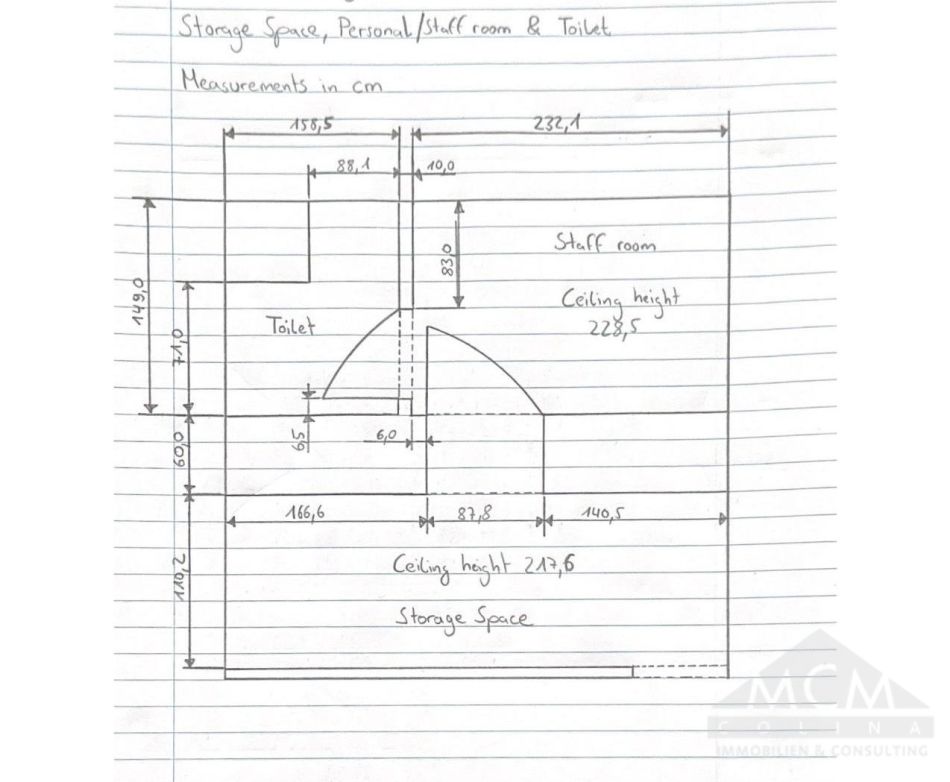 Storage Space, Personal/Staff room & Toilet
Measurements in cm
158,5
232,1
88,1
10,0
Staff room
83,0
Ceiling height
228,5
149,0
Toilet
71,0
6,5
6,0
60,0
166,6
87,8
140,5
Ceiling height 217,6
110,2
Storage Space
MCM
COLINA
IMMOBILIEN & CONSULTING